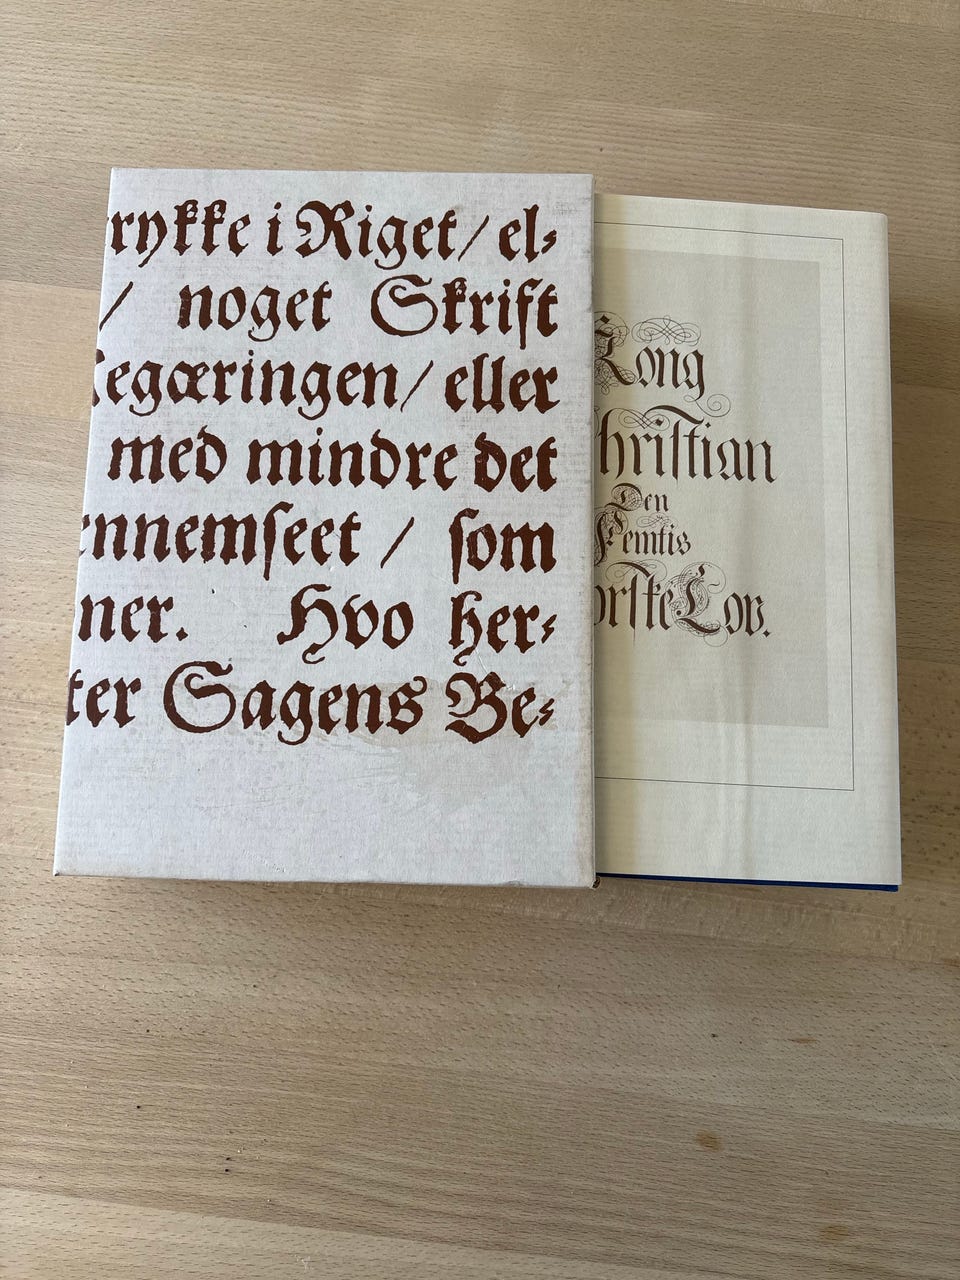 rykke i Riget/ el⸗
/ noget Skrift
egæringen/ eller
med mindre det
nnemſeet / ſom
ner. Hvo her⸗
ter Sagens Be⸗
Kong
Chriſtian
Den
Femtis
orſke Lov.